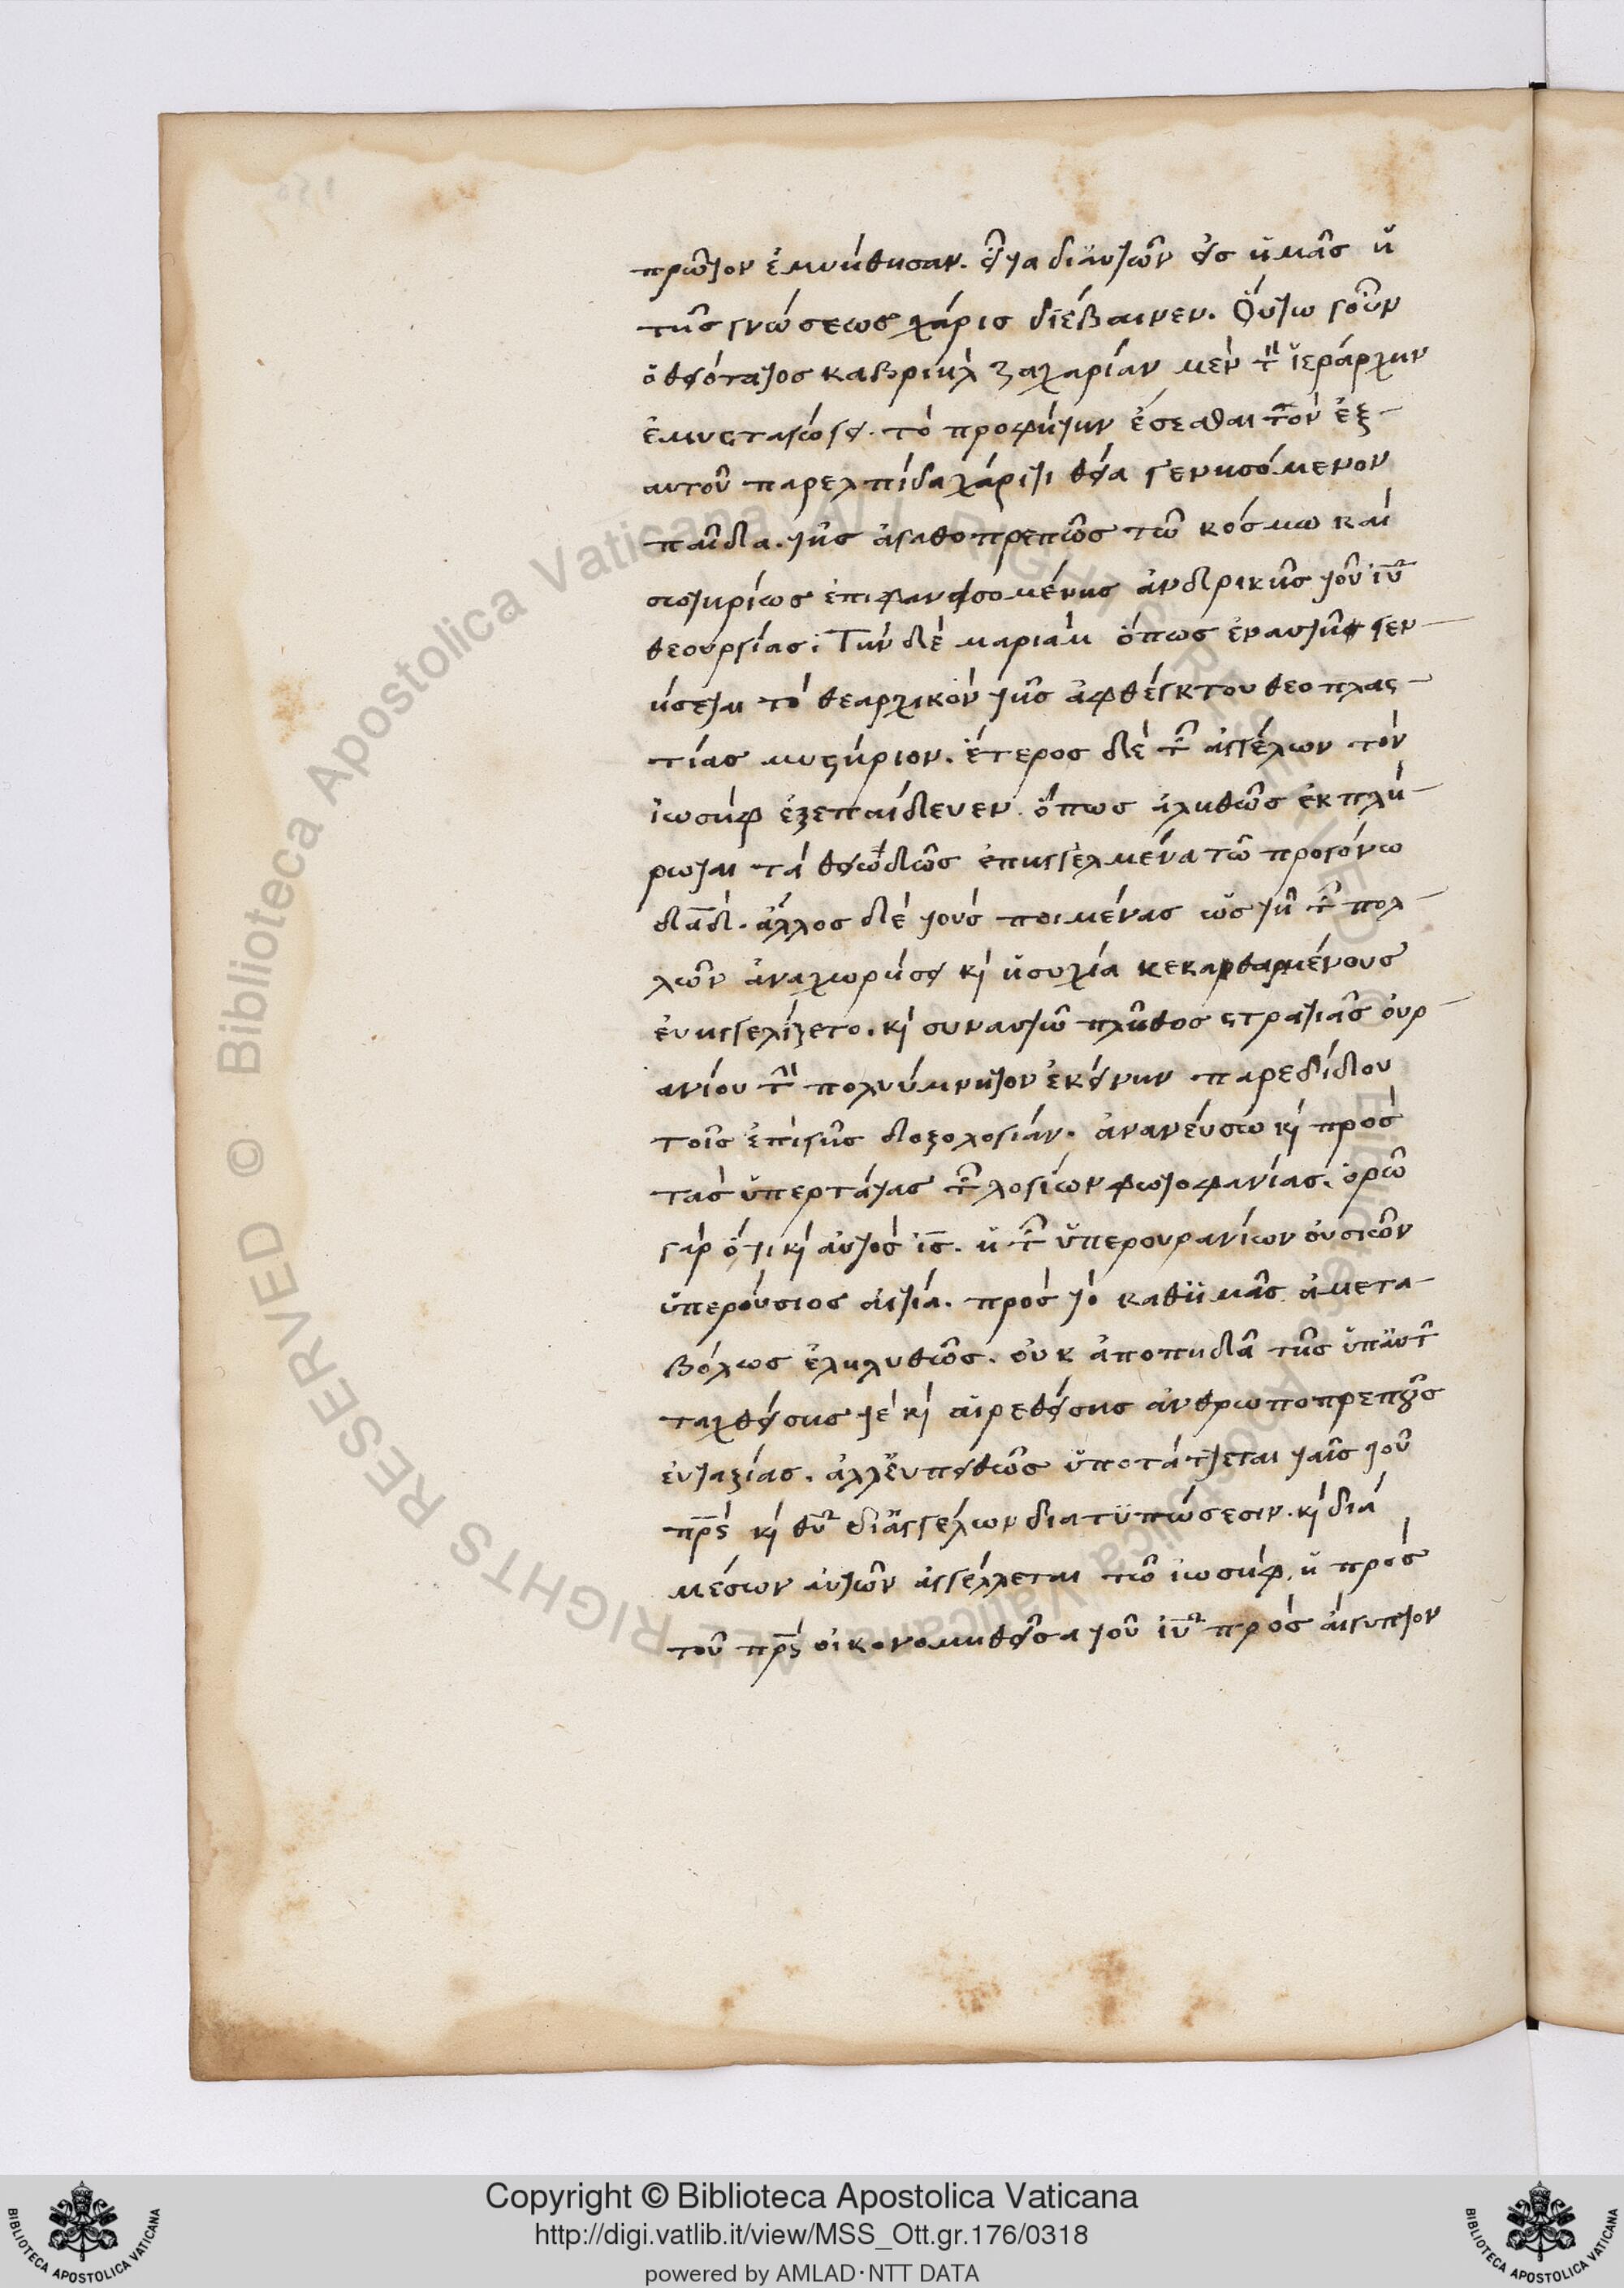 πρῶτον ἐμυήθησαν. εἶτα δι' αὐτῶν εἰς ἡμᾶς ἡ
τῆς γνώσεως χάρις διέβαινεν. Οὕτω γοῦν
ὁ θειότατος γαβριὴλ ζαχαρίαν μὲν τ̂ ἱεράρχην
ἐμυσταγώγει. τὸ προφήτην ἔσεσθαι τὸν ἐξ-
αυτοῦ παρελπίδα χάριτι θεία γενησόμενον
παῖδα. τῆς ἀγαθοπρεπῶς τῶ κόσμω καὶ
σωτηρίως ἐπιφανεισομένης ἀνδρικῆς τοῦ ἰυ̅
θεουργίας: Τὴν δὲ μαριὰμ ὅπως ἐναυτῆ γεν-
ήσεται τὸ θεαρχικὸν τῆς ἀφθέγκτου θεοπλασ-
τίας μυστήριον. ἕτερος δὲ τ̂ ἀγγέλων τὸν
ἰωσὴφ ἐξεπαίδευεν. ὅπως ἀληθῶς ἐκπλη-
ρωται τὰ θειωδῶς ἐπηγγελμένα τῶ προγόνω
δα̅δ. ἄλλος δὲ τοὺς ποιμένας ὡς τῆ τ̂ πολ-
λῶν ἀναχωρήσει κὶ ἡσυχία κεκαρθαρμένους
ἐυηγγελίζετο. κὶ συναυτῶ πλῆθος στρατιᾶς ὀυρ-
ανίου τ̂ πολυύμνητον ἐκείνην παρεδίδου
τοῖς ἐπὶ γῆς δοξολογίαν. ἀνανεύσω κὶ πρὸς
τὰς ὑπερτάτας τ̂ λογίων φωτοφανίας. ὁρῶ
γὰρ ὅτι κὶ ἀυτὸς ἰς̅. ἡ τ̂ ὑπερουρανίων ὀυσιῶν
ὑπερούσιος ἀιτία. πρὸς τὸ καθ' ἡμᾶς ἀμετα-
βόλως ἐληλυθῶς. οὐκ ἀποπηδᾶ τῆς ὑπ' ἀυτ̂
ταχθείσης τὲ κὶ αἱρεθείσης ἀνθρωποπρεποῦς
ἐυταξίας. ἀλλ' ἐυπειθῶς ὑποτάττεται ταῖς τοῦ
πρ̅ς κὶ θυ̅ δι' ἀγγέλων διατυπώσεσιν. κὶ διὰ
μέσων ἀυτῶν ἀγγέλλεται τῶ ἰωσὴφ. ἡ πρὸς
τοῦ πρ̅ς οἰκονομηθεῖσα τοῦ ἰυ̅ πρὸς ἀίγυπτον